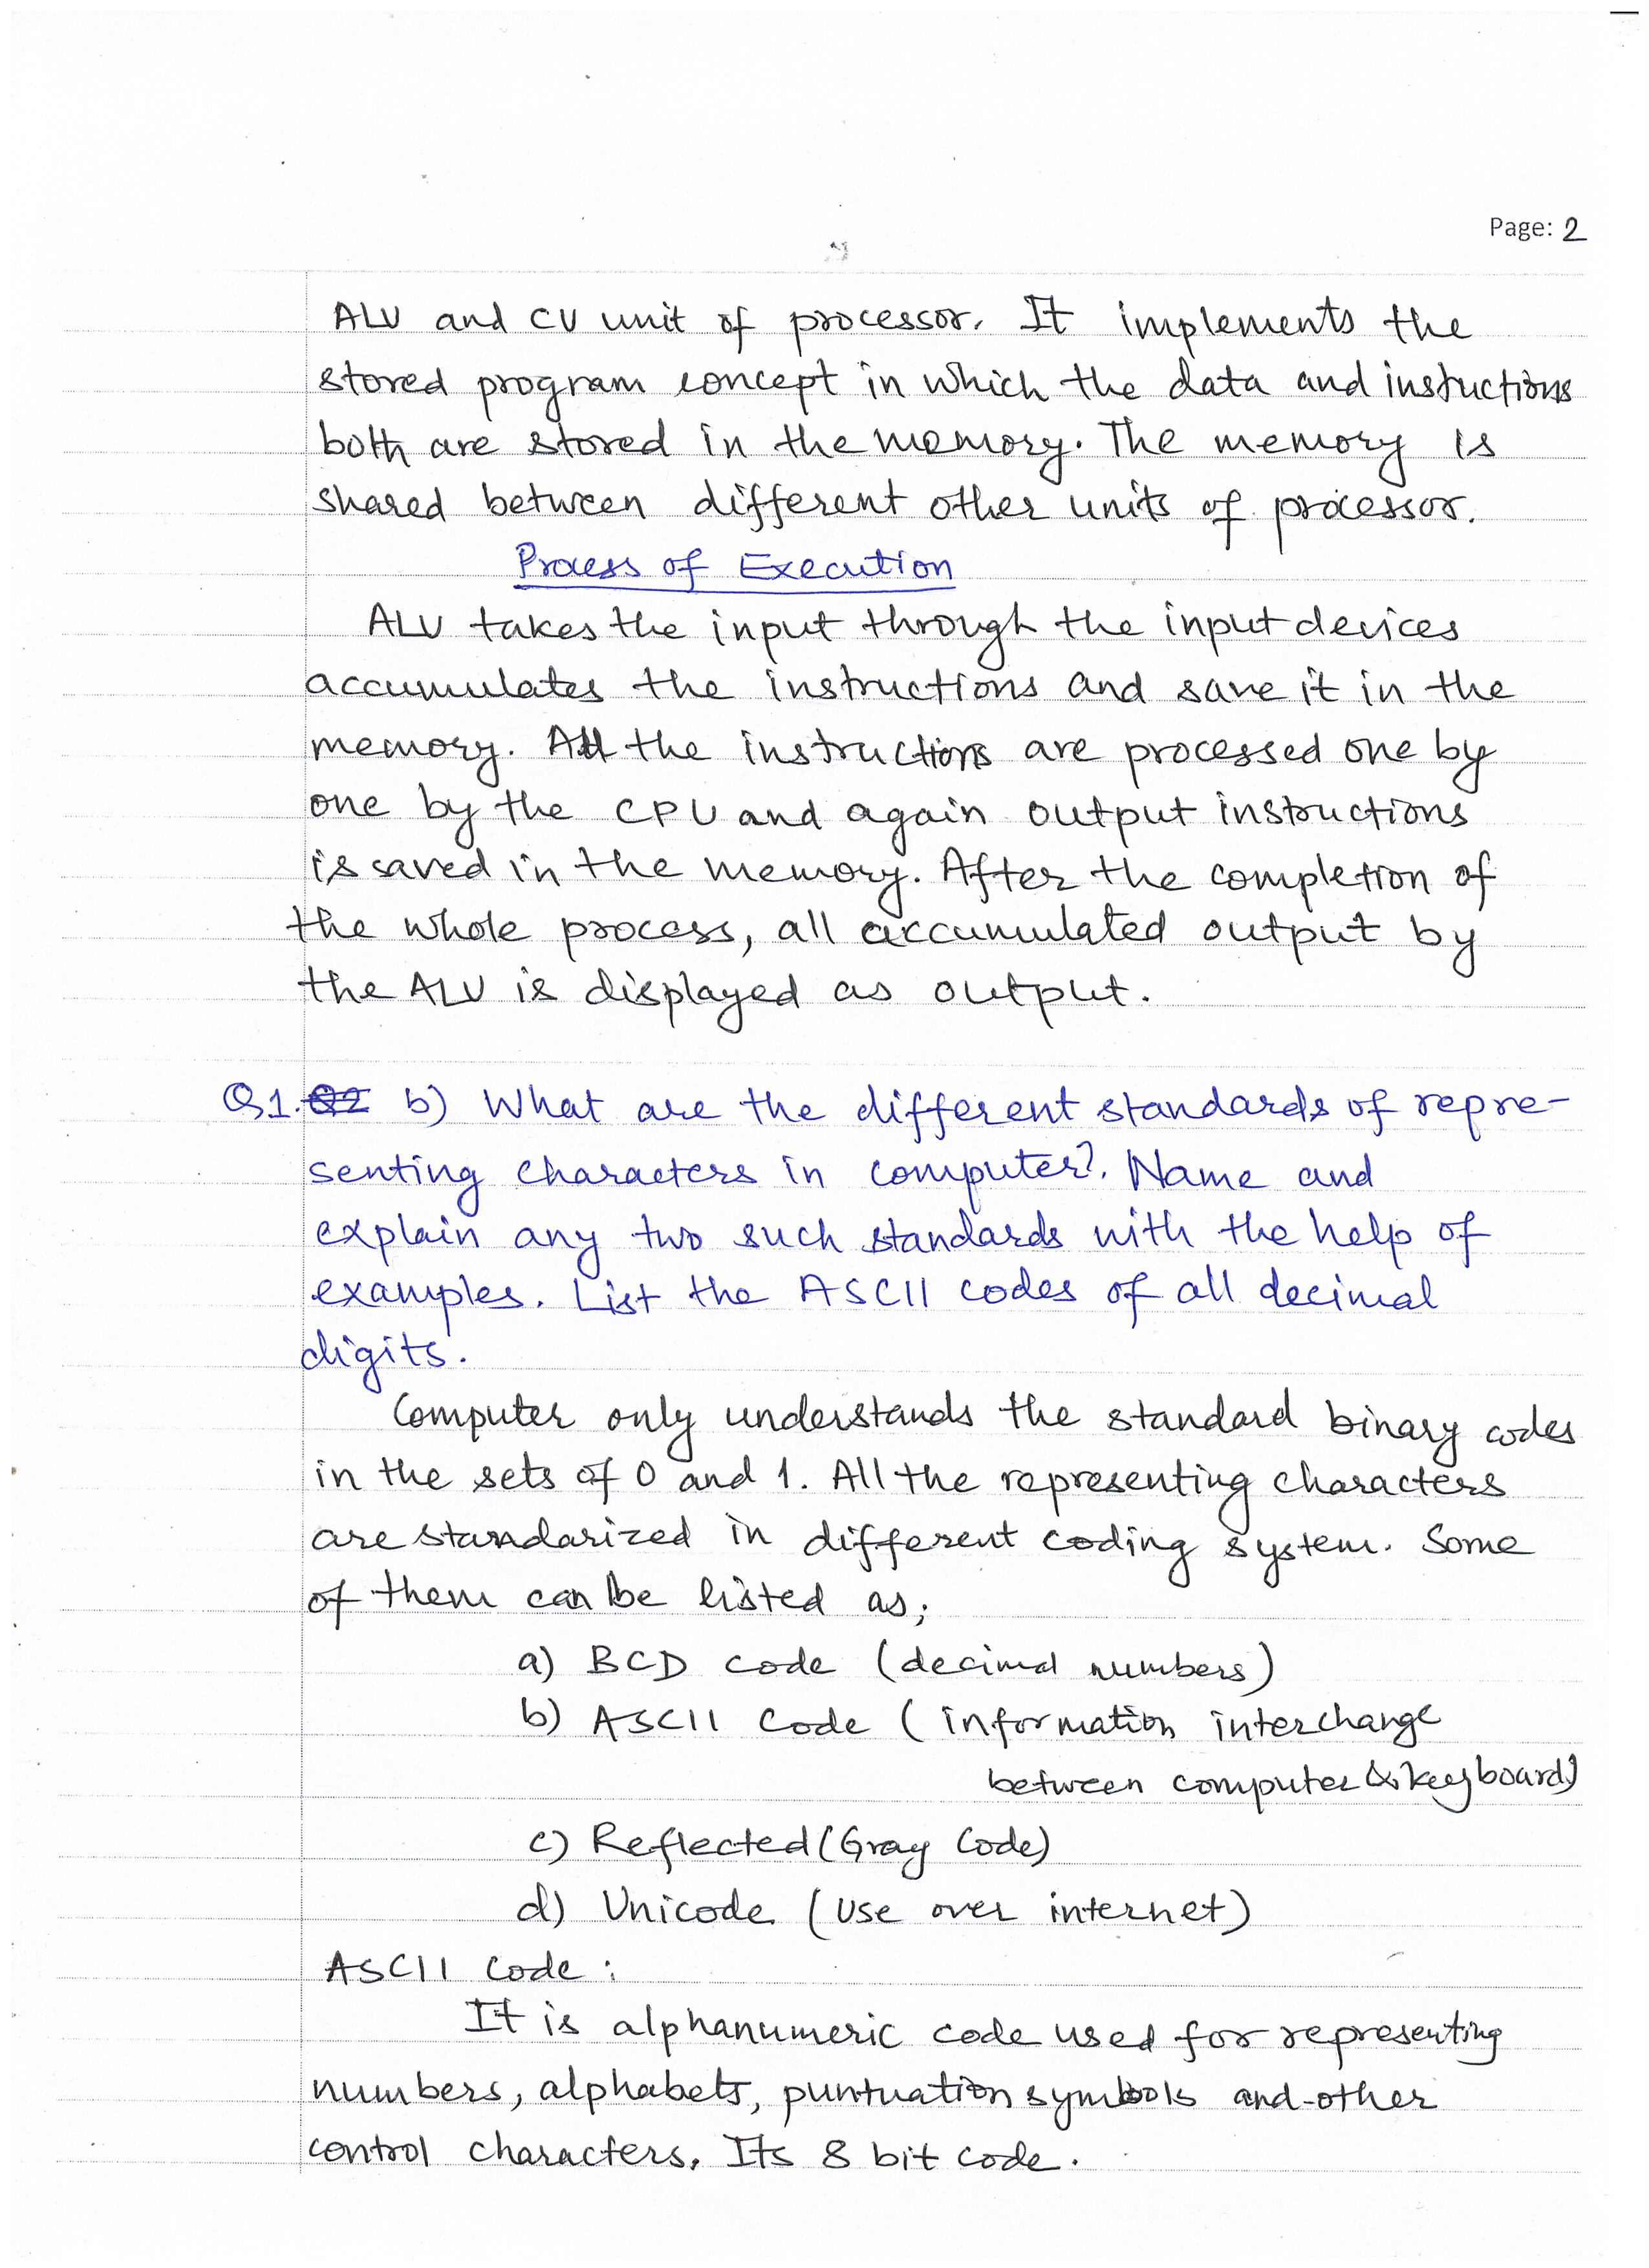 Page: 2
ALU and CU unit of processor. It implements the
stored program concept in which the data and instuctions
both are stored in the memory. The memory is
shared between different other units of processor.
Process of Execution
ALU takes the input through the input devices
accumulates the instructions and save it in the
memory. All the instructions are processed one by
one by the CPU and again output instructions
is saved in the memory. After the completion of
the whole process, all accumulated output by
the ALU is displayed as output.
Q1. Q2 b) What are the different standards of repre-
senting characters in computer?. Name and
explain any two such standards with the help of
examples. List the ASCII codes of all decimal
digits.
Computer only understands the standard binary codes
in the sets of 0 and 1. All the representing characters
are standarized in different coding system. Some
of them can be listed as;
a) BCD code (decimal numbers)
b) ASCII Code (information interchange
between computer & keyboard)
c) Reflected (Gray Code)
d) Unicode (Use over internet)
ASCII Code :
It is alphanumeric code used for representing
numbers, alphabets, puntuation symbols and other
control characters. Its 8 bit code.